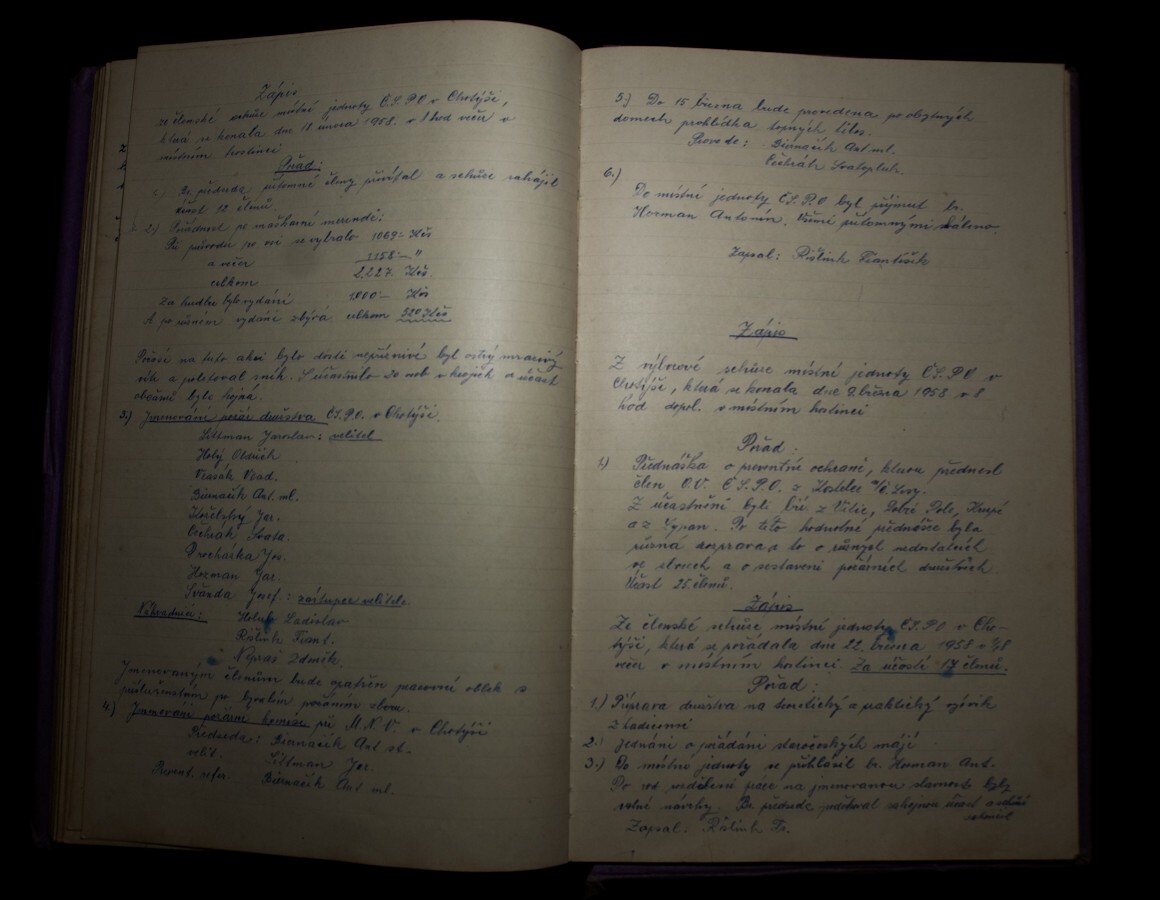 Zápis
ze členské schůze místní jednoty Č.S.P.O v Chotýši,
která se konala dne 18. února 1958. v hod večer v
místním hostinci
Pořad:
1.) Br. předseda přítomné členy přivítal a schůzi zahájil
účast 12 členů.
2.) po maškarní merendě:
Při průvodu po vsi se vybralo 1069.- Kčs
a večer 1158.- "
celkem 2227. Kčs.
Za hudbu bylo vydání 1000.- Kčs
A po různém vydání zbývá celkem 520 Kčs
Počasí na tuto akci bylo dosti nepříznivé byl ostrý mrazivý
vítr a poletoval sníh. Súčastnilo 20 osob v krojích a účast
občanů byla hojná.
3.) Jmenování požár. družstva Č.S.P.O. v Chotýši.
Littman Jaroslav: velitel
Holý Oldřich
Vend.
Birnačík Ant. ml.
Jar.
Čechrák Svato.
Procházka Jos.
Herman Jar.
Švanda Josef: zástupce velitele.
Náhradníci: Holub Ladislav
Rišlink Frant.
Nepraš Zdeněk.
Jmenovaným členům bude opatřen pracovní oblek s
příslušenstvím po bývalém požárním sboru.
4.) Jmenování požární komise při M.N.V. v Chotýši
Předseda: Birnačík Ant st.
velit. Littman Jar.
refer. Birnačík Ant ml.
5.) Do 15 března bude provedena po obytných
domech prohlídka topných těles.
Provede: Birnačík Ant ml.
Čechrák Svatopluk.
6.)
Do místní jednoty Č.S.P.O byl přijmut br.
Herman Antonín. Všemi přítomnými
Zapsal: Rišlink František
Zápis
Z výborové schůze místní jednoty Č.S.P.O v
Chotýši, která se konala dne 9. března 1958 v 8
hod dopol. v místním hostinci
Pořad:
1.) Přednáška o preventivní ochraně, kterou přednesl
člen O.V. Č.S.P.O. z Kostelce n/č. Lesy.
Z účastněni byli bří. z Vitic, Dobré Pole, Krupé
a z Lipan. Po této hodnotné přednášce byla
různá rozprava a to o různých nedostatcích
ve sborech a o sestavení požárních družstvech
Účast 25. členů.
Zápis
Ze členské schůze místní jednoty Č.S.P.O v Cho-
týši, která se pořádala dne 22. března 1958 v 1/2 8
večer v místním hostinci. Za účasti 17 členů.
Pořad:
1.) Příprava družstva na teoretický a praktický výcvik
2.) Jednání o pořádání staročeských májí
3.) Do místní jednoty se přihlásil br. Herman Ant.
Po roz sedělení práce na jmenovanou slavnost byly
volné návrhy. Br. předseda poděkoval za hojnou účast a schůzi
zakončil
Zapsal: Rišlink Fr.